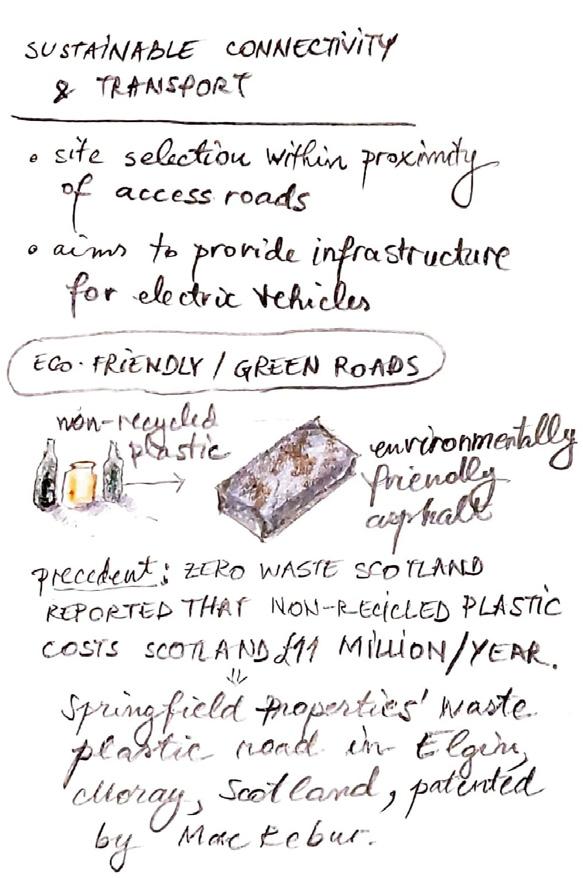 SUSTAINABLE CONNECTIVITY
& TRANSPORT
• site selection within proximity
of access roads
• aims to provide infrastructure
for electric vehicles
ECO-FRIENDLY / GREEN ROADS
non-recycled
plastic
environmentally
friendly
asphalt
precedent: ZERO WASTE SCOTLAND
REPORTED THAT NON-RECICLED PLASTIC
COSTS SCOTLAND £11 MILLION/YEAR.
Springfield Properties' waste
plastic road in Elgin,
Moray, Scotland, patented
by MacRebur.